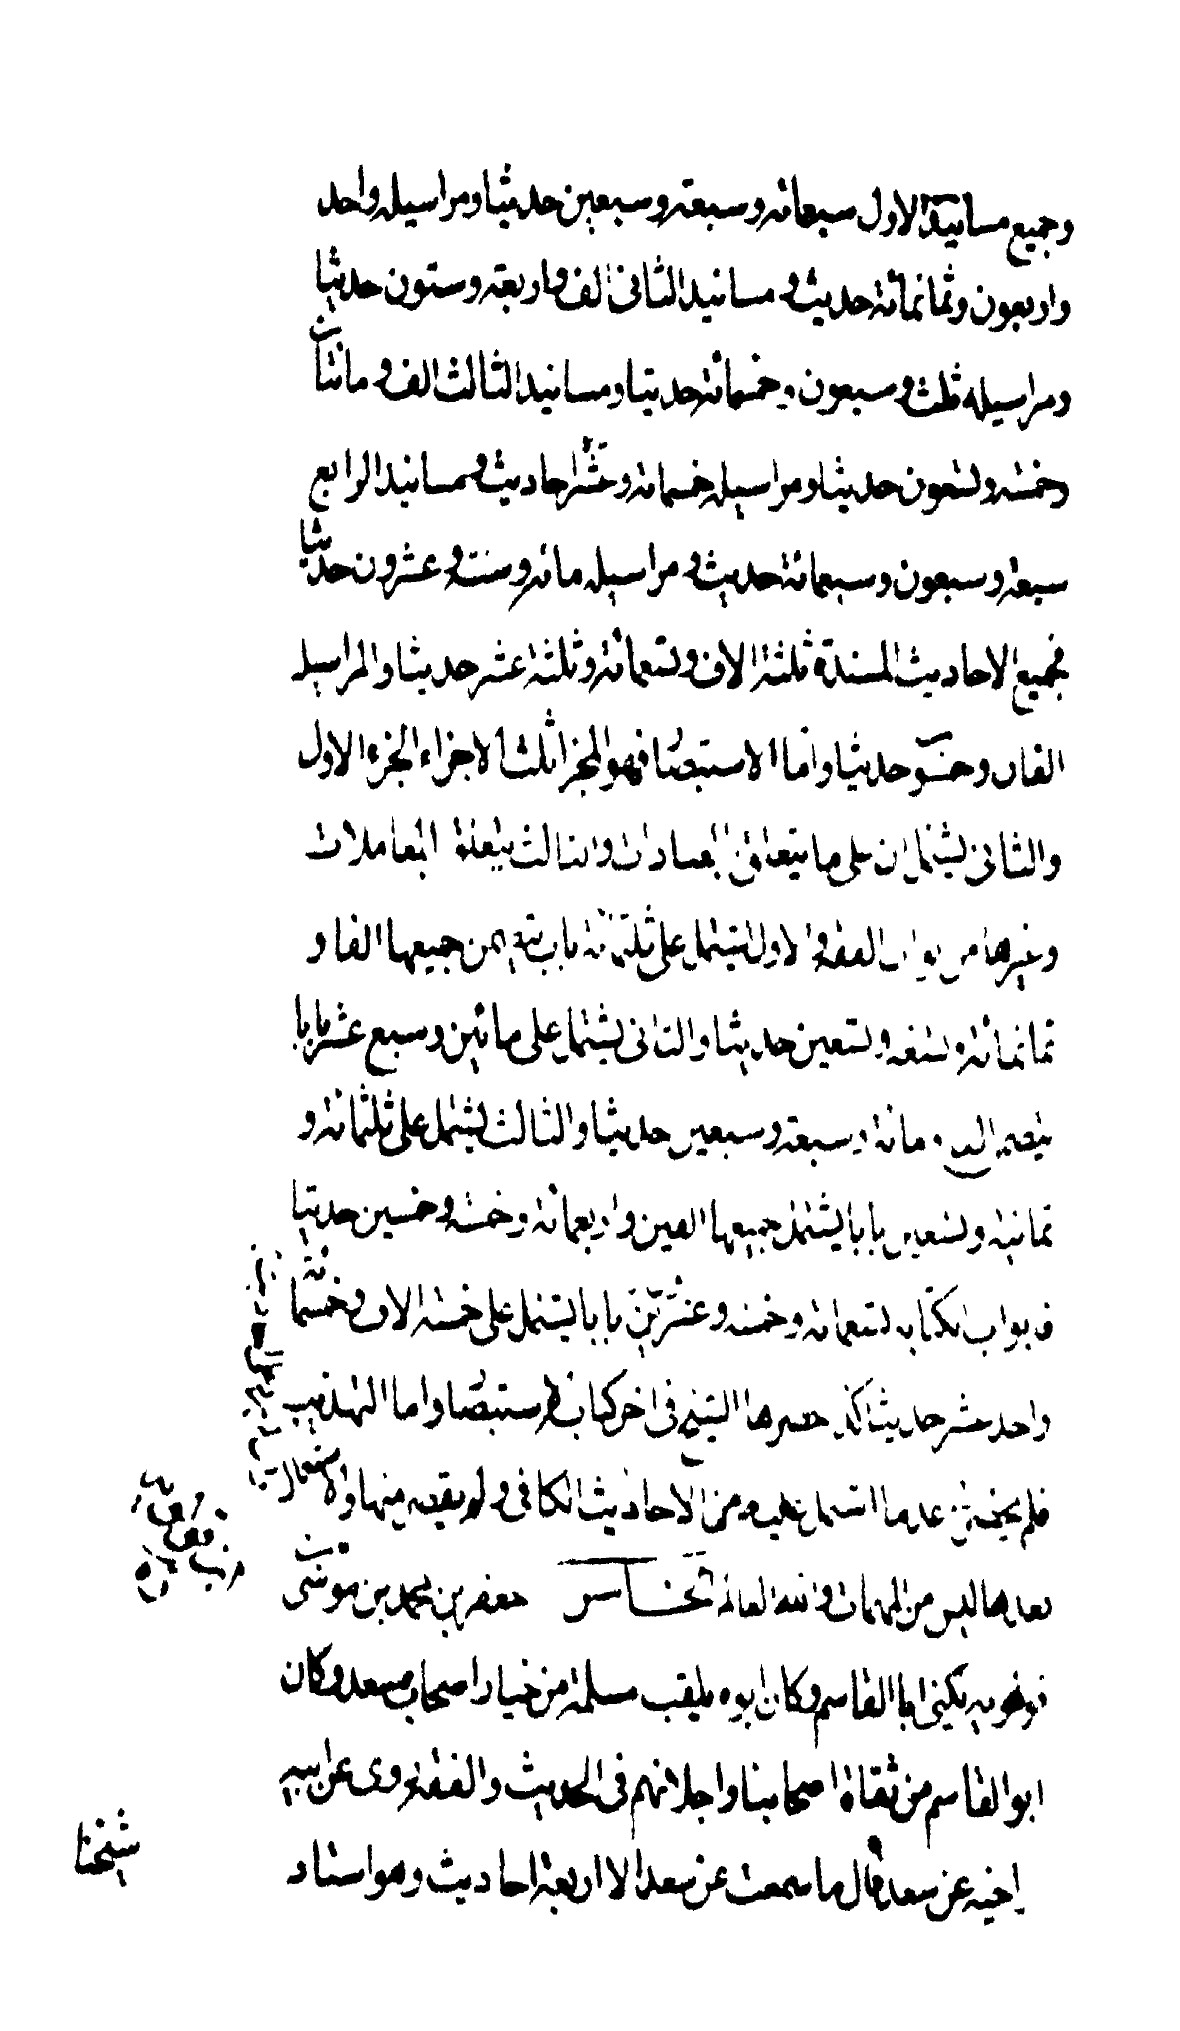 وجميع مسانيد الاول سبعمائه وسبعة وسبعين حديثا ومراسيله واحد
واربعون وثمانمائة حديث و مسانيد الثانى الف واربعة وستون حديثا
ومراسيله ثلث وسبعون وخمسمائة حديثا ومسانيد الثالث الف ومائتان
وخمسة وتسعون حديثا ومراسيله خمسمائة وعشر احاديث ومسانيد الرابع
سبعة وسبعون وسبعمائة حديث ومراسيله مائة وست وعشرون حديثا
فجميع الاحاديث المسندة ثلثة الاف وتسعمائة وثلثة عشر حديثا والمراسيل
الفان وخمسون حديثا واما الاستبصار فهو المجزا بثلثة اجزاء الجزء الاول
والثانى يشتملان على ما يتعلق من العبادات والثالث يتعلق المعاملات
وغيرها من ابواب الفقه والاول يشتمل على ثلثمائة باب يتضمن جميعها الفا و
ثمانمائة وتسعة وتسعين حديثا والثانى يشتمل على مائتين وسبع عشر بابا
يتضمن الف ومائة وسبعة وسبعين حديثا والثالث يشتمل على ثلثمائة و
ثمانية وتسعين بابا يشتمل جميعها الفين واربعمائة وخمسة وخمسين حديثا
فابواب الكتاب تسعمائة وخمسة وعشرين بابا يشتمل على خمسة الاف وخمسمائة
واحد عشر حديثا كذا حصرها الشيخ فى اخر كتاب الاستبصار واما التهذيب
فلم يحضرنى عدد ما اشتمل عليه من الاحاديث الكافى ولم يقيد منها والاشتغال
بعدها ليس من المهمات والله العالم الخامس جعفر بن محمد بن موسى بن
قولويه يكنى ابا القاسم وكان ابوه يلقب مسلمة من خيار اصحاب سعد وكان
ابو القاسم من ثقاة اصحابنا واجلائهم فى الحديث والفقه روى عن ابيه
اخيه عن سعد قال ما سمعت عن سعد الا اربعة احاديث وهو استاد
شيخنا